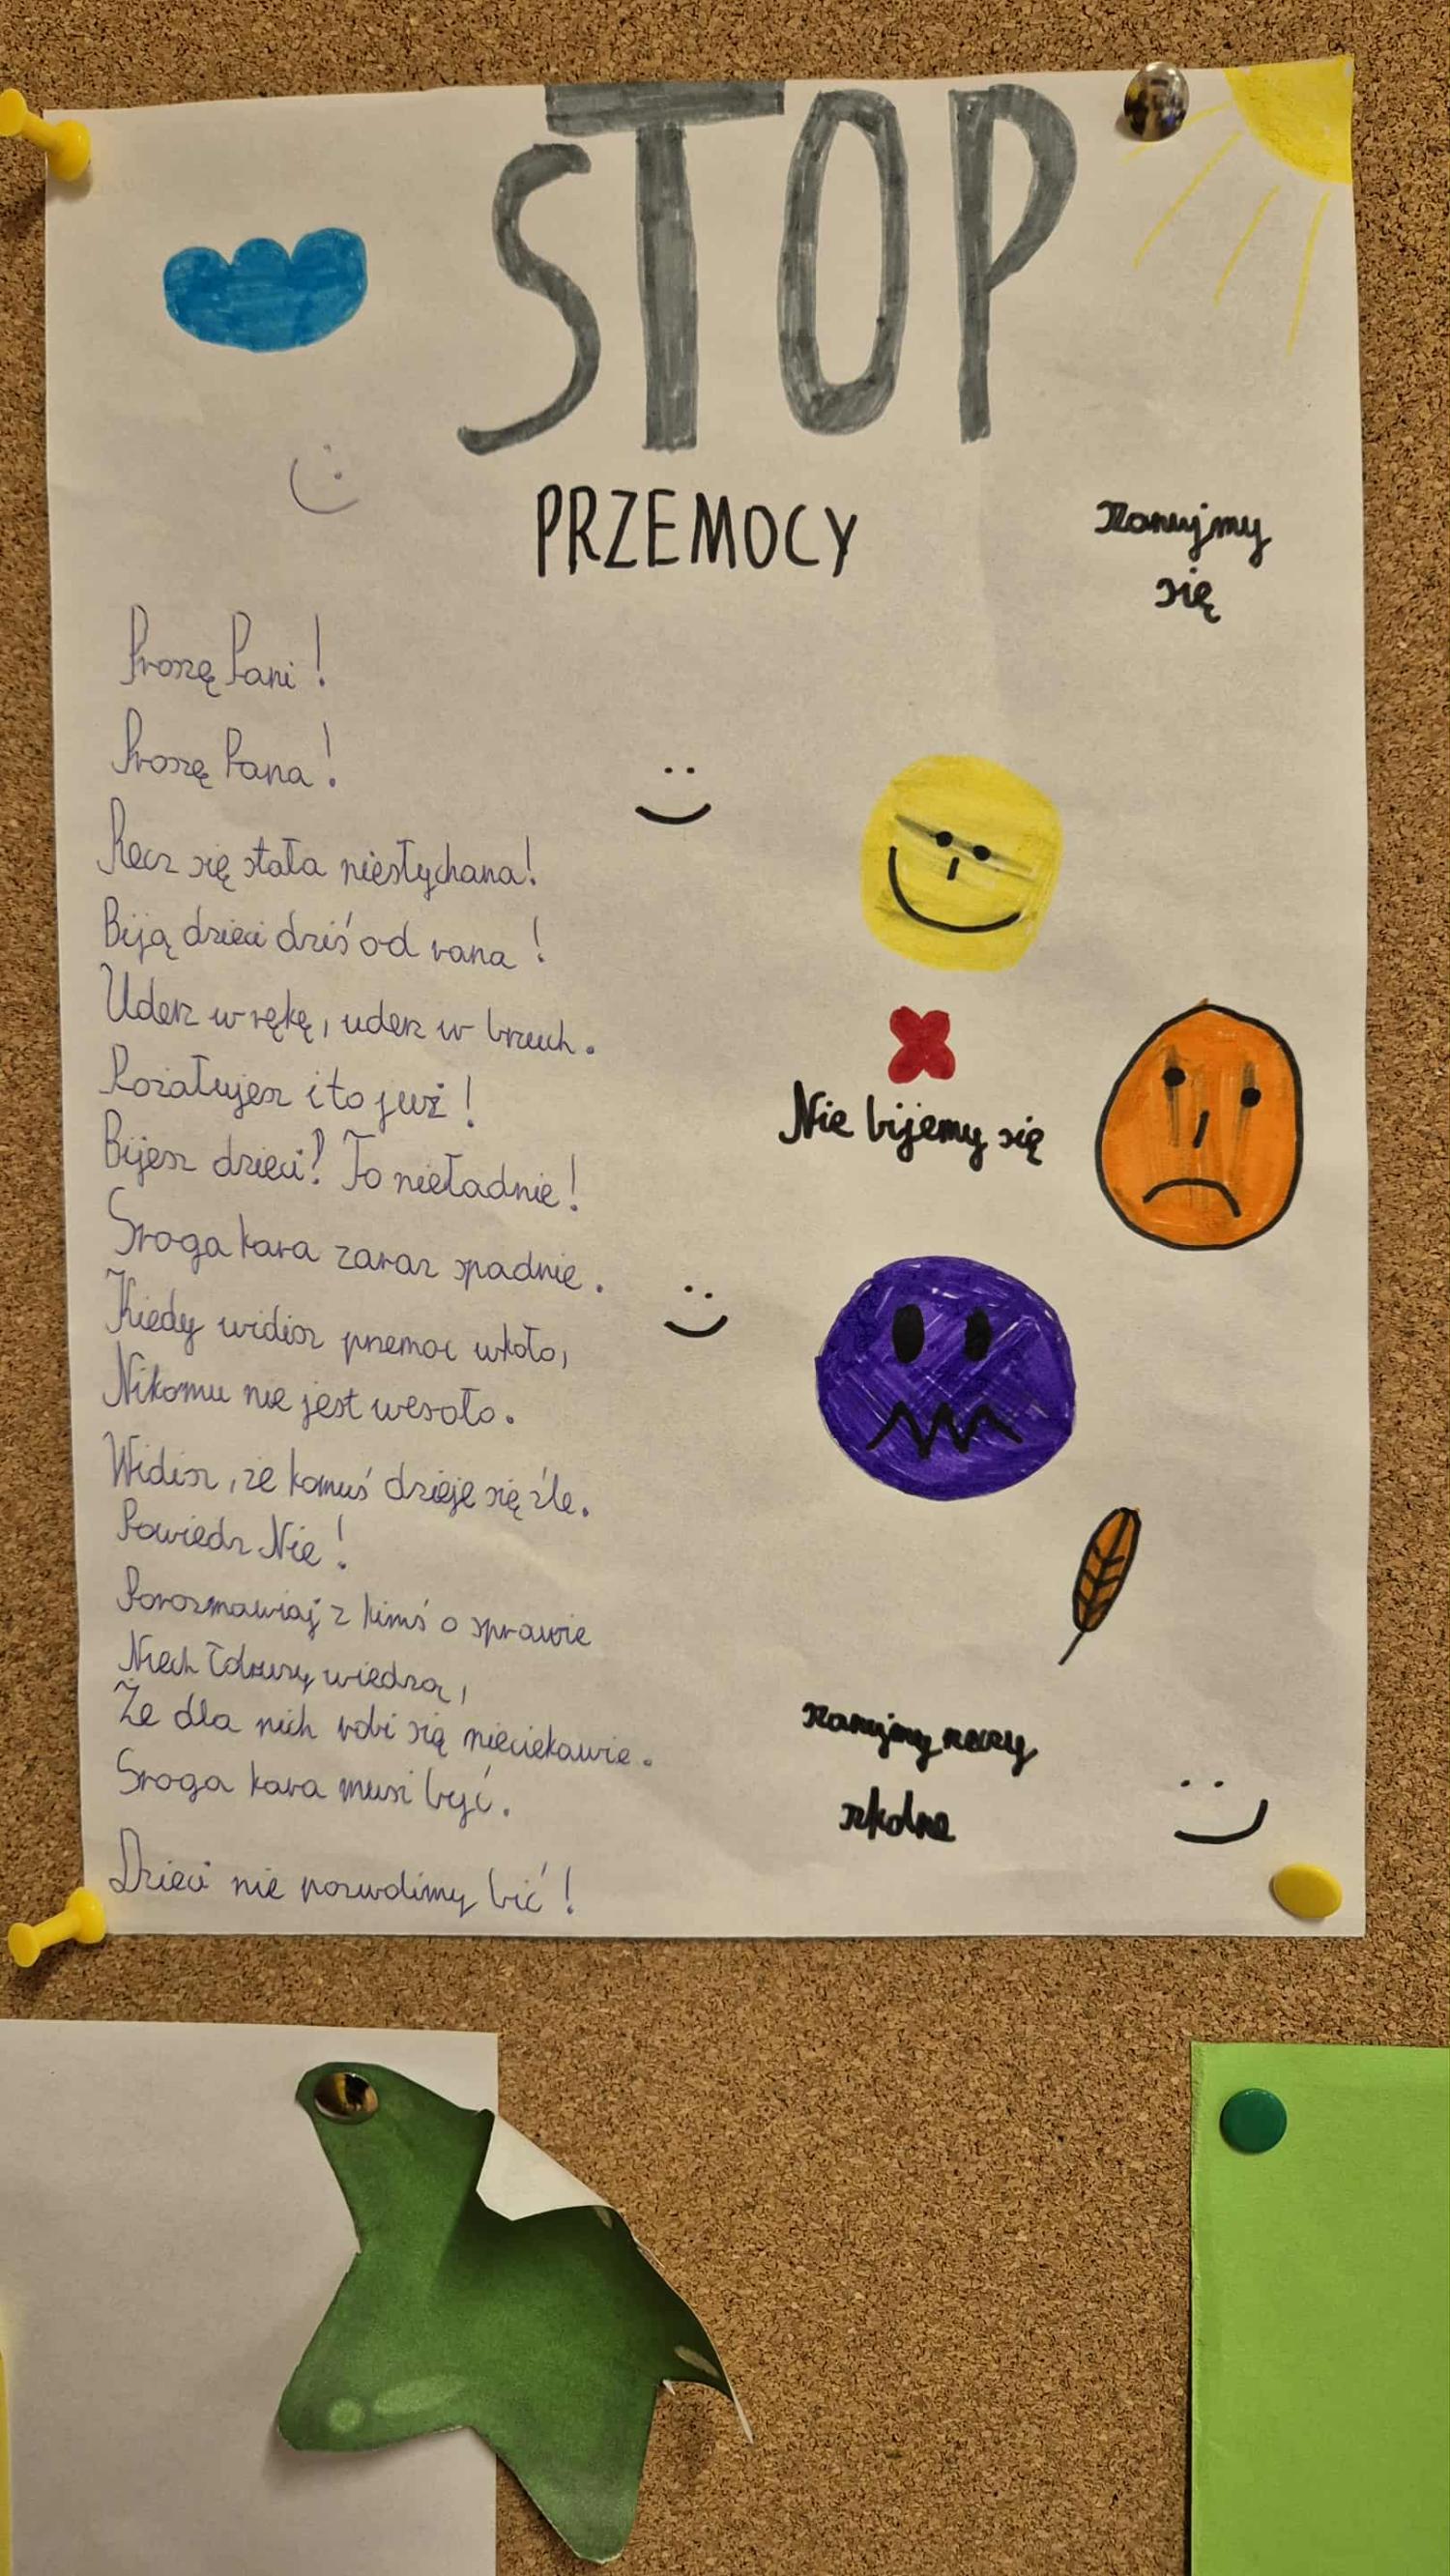 STOP
PRZEMOCY
szanujmy
się
Proszę Pani!
Proszę Pana!
Rzecz się stała niesłychana!
Biją dzieci dziś od rana!
Uderz w rękę, uderz w brzuch.
Pożałujesz i to już!
Bijesz dzieci? To nieładnie!
Sroga kara zaraz spadnie.
Kiedy widisz przemoc wkoło,
Nikomu nie jest wesoło.
Widisz, że komuś dzieje się źle.
Powiedz Nie!
Porozmawiaj z kimś o sprawie
Niech wiedzą,
Że dla nich robi się nieciekawie.
Sroga kara musi być.
Dzieci nie pozwolimy bić!
Nie bijemy się
szanujmy rzeczy
szkolne